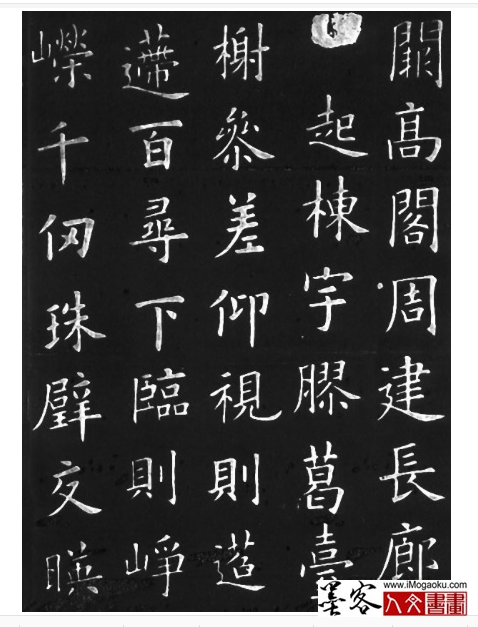 闕高閣周建長廊
起棟宇膠葛臺
榭參差仰視則迢
遰百尋下臨則崢
嶸千仞珠璧交映
墨客
www.iMogaoku.com
人文書畫